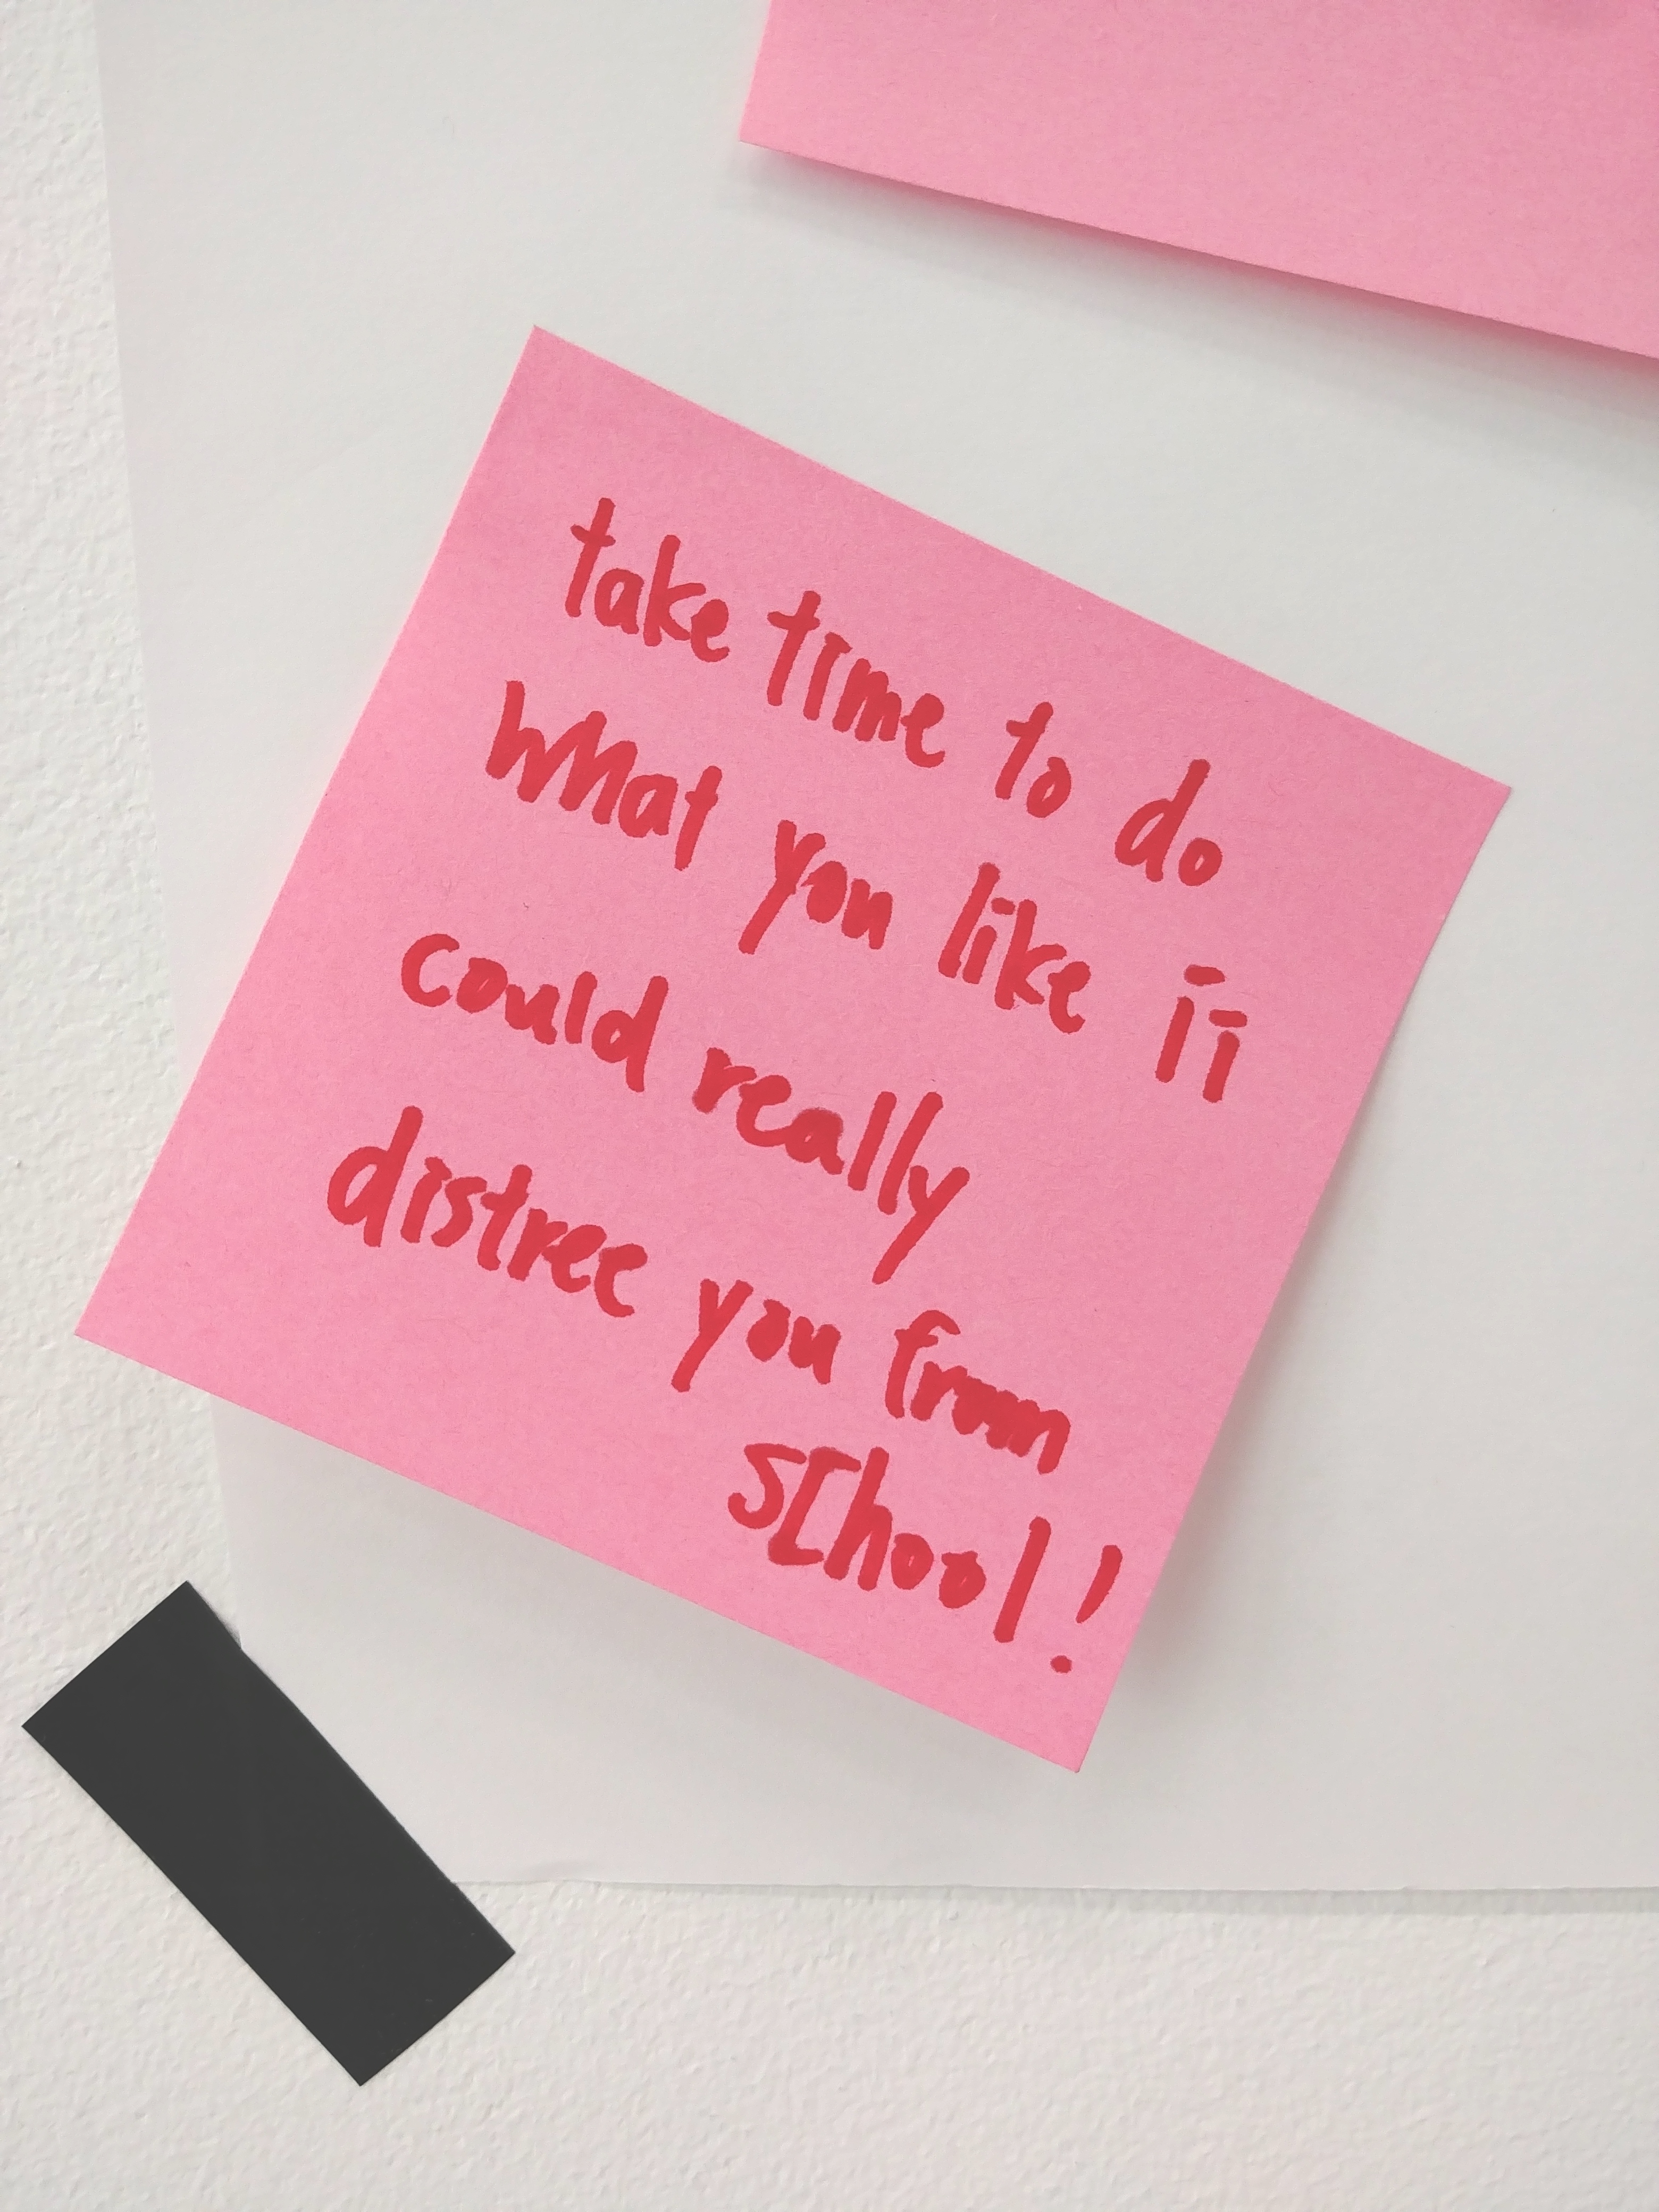 take time to do
what you like ii
could really
distree you from
school!